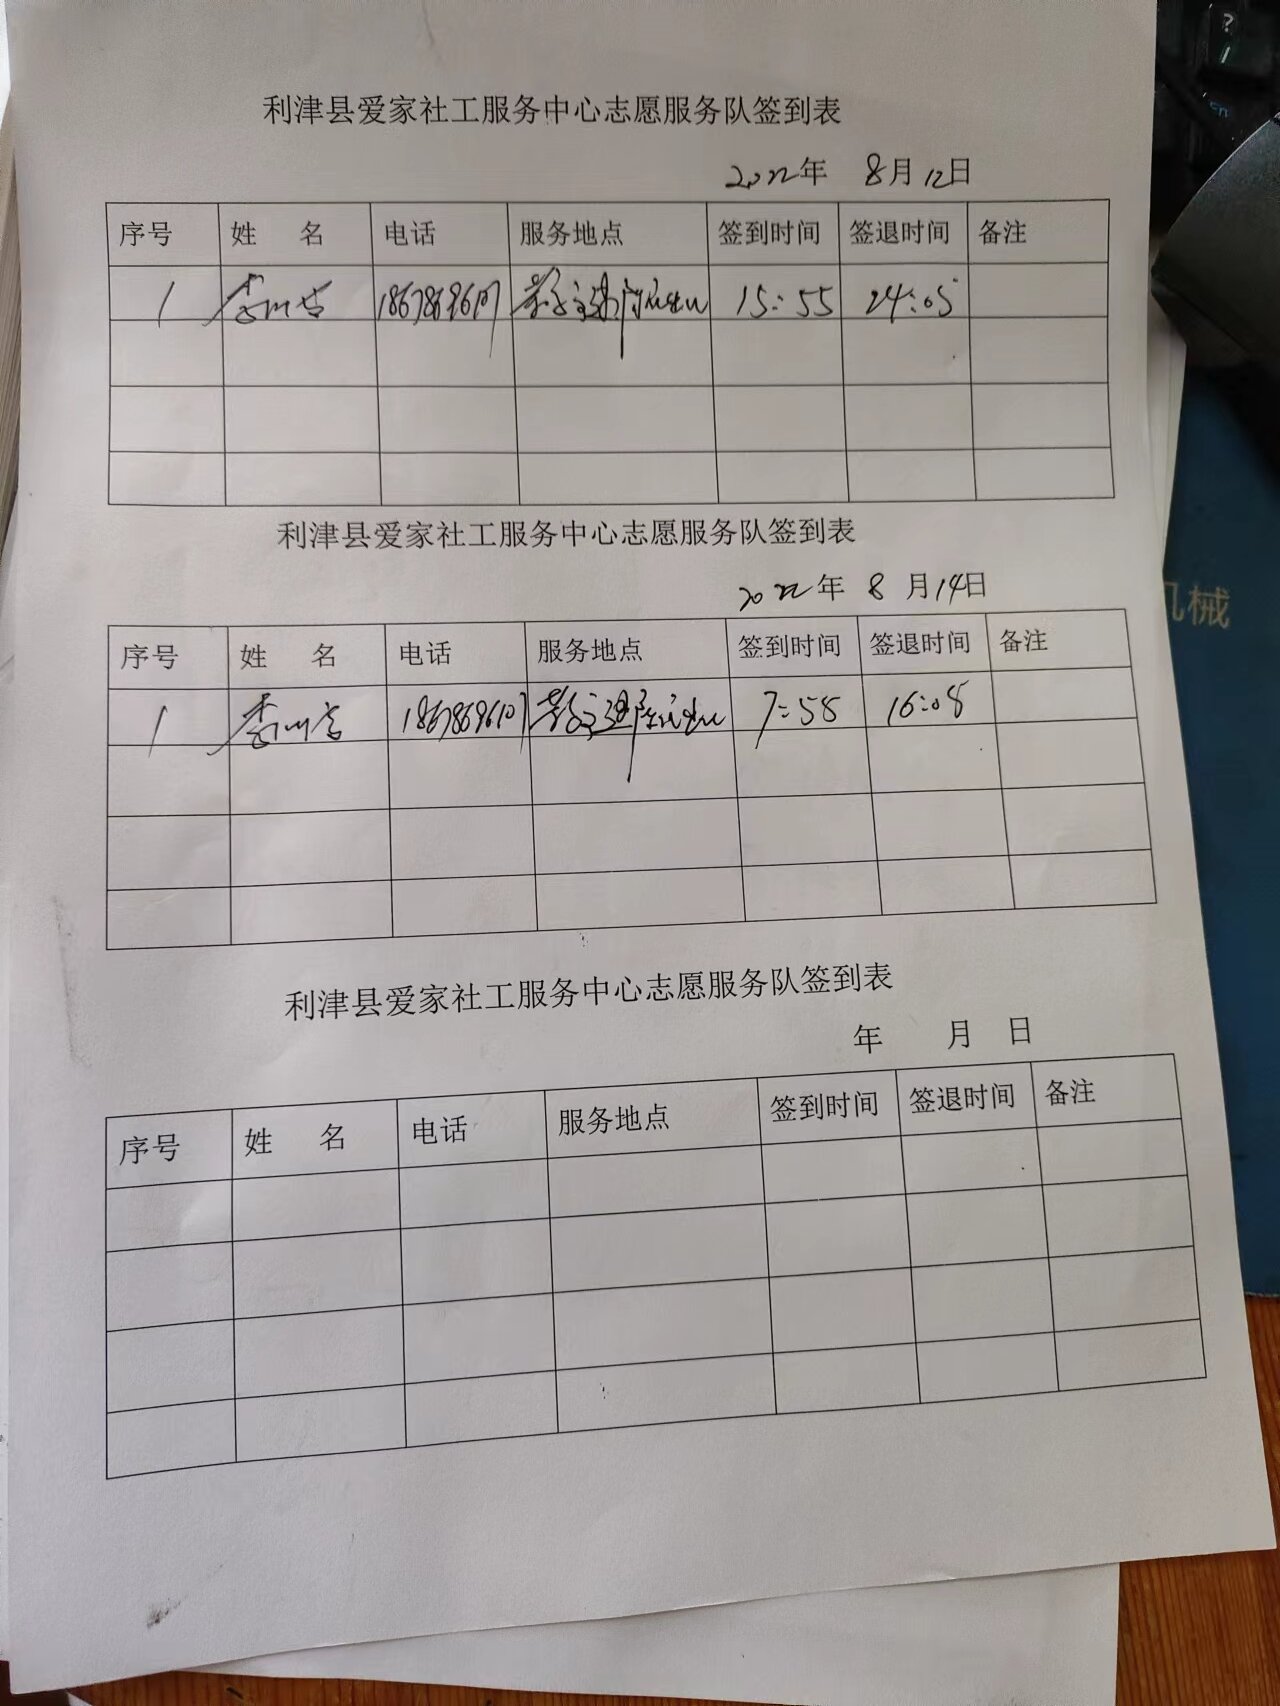 利津县爱家社工服务中心志愿服务队签到表
2022年 8月12日
序号 姓 名 电话 服务地点 签到时间 签退时间 备注
1 18678696107 15:55 24:05
利津县爱家社工服务中心志愿服务队签到表
2022年 8月14日
序号 姓 名 电话 服务地点 签到时间 签退时间 备注
1 18678696107 7:58 16:08
利津县爱家社工服务中心志愿服务队签到表
年 月 日
序号 姓 名 电话 服务地点 签到时间 签退时间 备注
机械